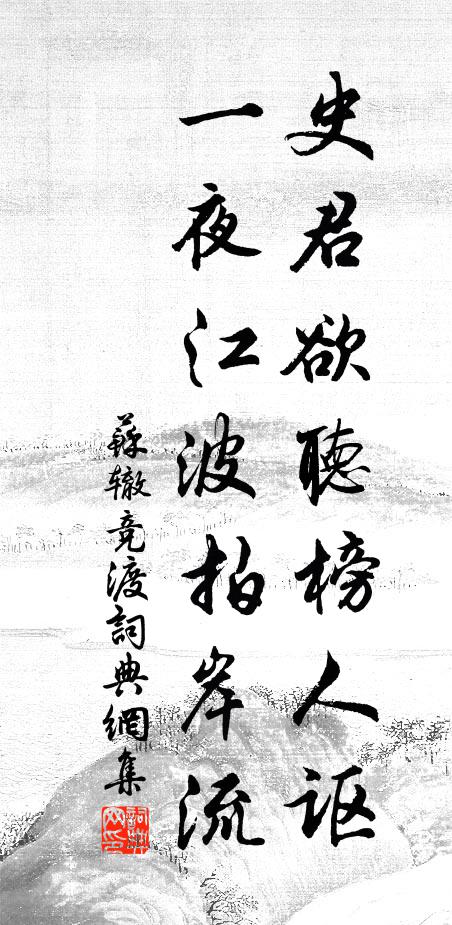 史君欲聽榜人讴
一夜江波拍岸流
蘇辙竞渡詞典網集